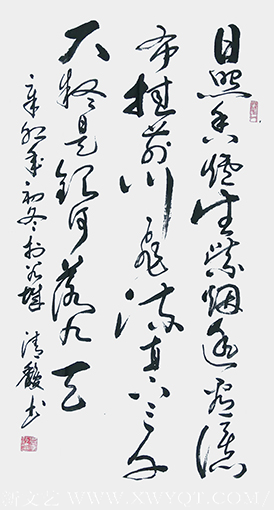 日照香炉生紫烟遥看瀑
布挂前川飞流直下三千
尺疑是银河落九天
辛卯年初冬於城 清馥书
WWW.XWYQT.COM